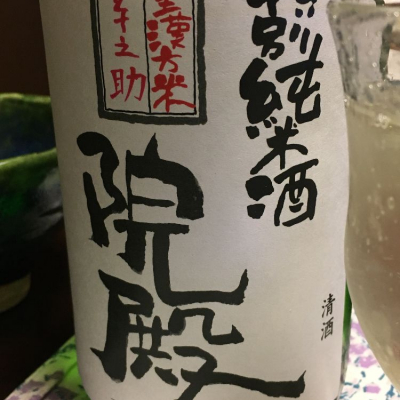 特別純米酒
漢方米
幸之助
院殿
清酒